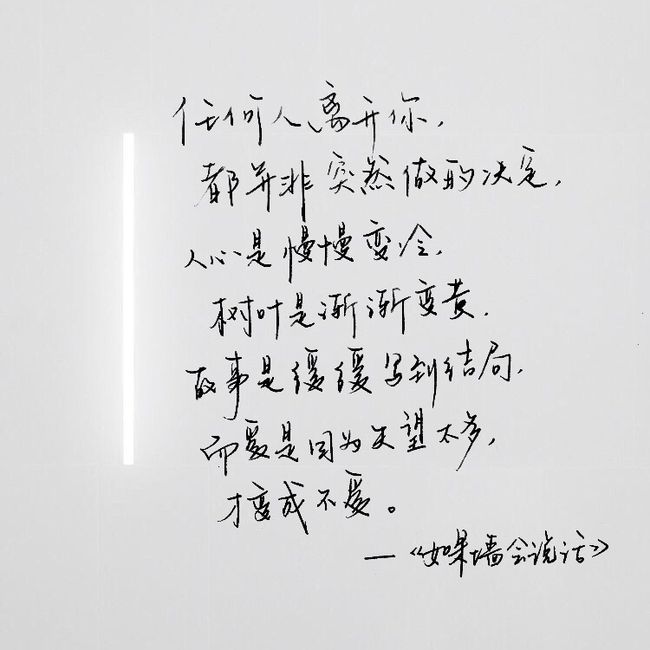 任何人离开你，
都并非突然做的决定，
人心是慢慢变冷，
树叶是渐渐变黄．
故事是缓缓写到结局，
而爱是因为失望太多，
才变成不爱。
—《如果墙会说话》